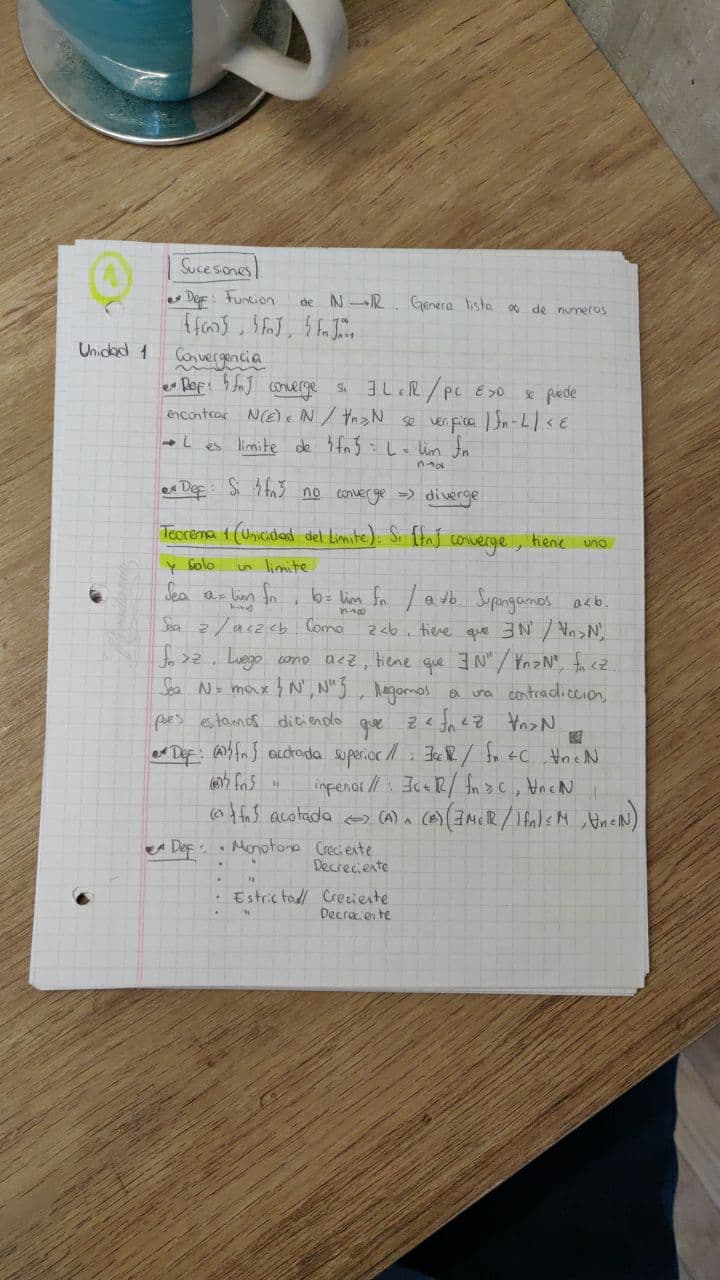 1
Sucesiones
Def: Funcion de N → R. Genera lista ∞ de numeros
{f(n)}, {fn}, {fn}∞n=1
Unidad 1
Convergencia
Def: {fn} converge si ∃ L ∈ R / pc ε>0 se puede
encontrar N(ε) ∈ N / ∀n≥N se verifica |fn-L| < ε
→ L es limite de {fn} : L = lim fn
n→∞
Def: Si {fn} no converge => diverge
Teorema 1 (Unicidad del Limite): Si {fn} converge, tiene uno
y solo un limite
Sea a = lim fn, b = lim fn / a ≠ b. Supongamos a<b.
n→∞ n→∞
Sea z / a<z<b Como z<b, tiene que ∃N' / ∀n>N',
fn >z. Luego como a<z, tiene que ∃N'' / ∀n≥N'', fn <z.
Sea N = max {N', N''}, llegamos a una contradiccion,
pues estamos diciendo que z < fn < z ∀n>N
Def: (A) {fn} acotada superior// : ∃c∈R / fn ≤ C, ∀n∈N
(B) {fn} " inferior// : ∃c∈R / fn ≥ C, ∀n∈N
(C) {fn} acotada <=> (A) ∧ (B) (∃M∈R / |fn| ≤ M, ∀n∈N)
Def: • Monotona Creciente
• " Decreciente
• "
• Estricta// Creciente
• " Decreciente